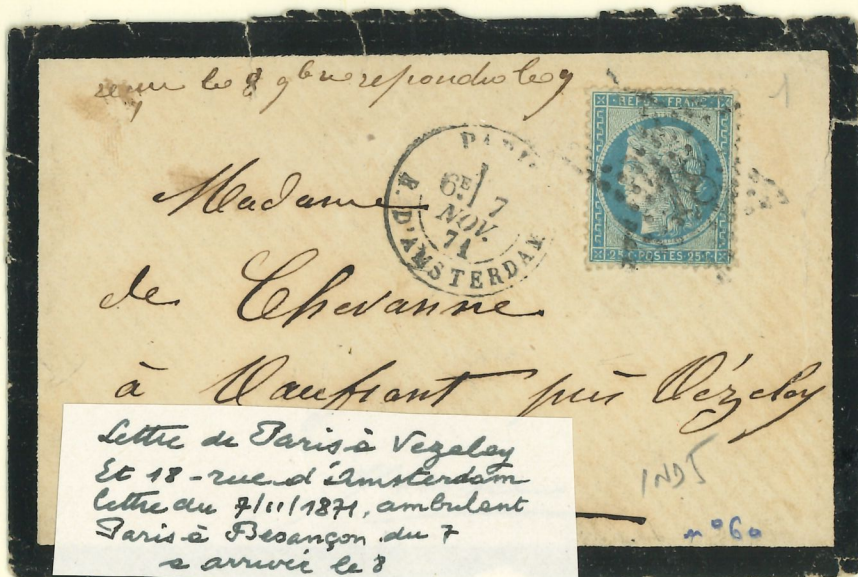 reçu le 8 9bre repondu le 9
1
PARIS
6E 7
NOV.
71
R. D'AMSTERDAM
REPUB. FRANC.
18
25 c POSTES 25 c
Madame
de Chevanne
à Vaufront près Vézelay
Lettre de Paris à Vezelay
Et 18 - rue d'Amsterdam
lettre du 7/11/1871, ambulant
Paris à Besançon du 7
a arrivée le 8
IND5
n° 60